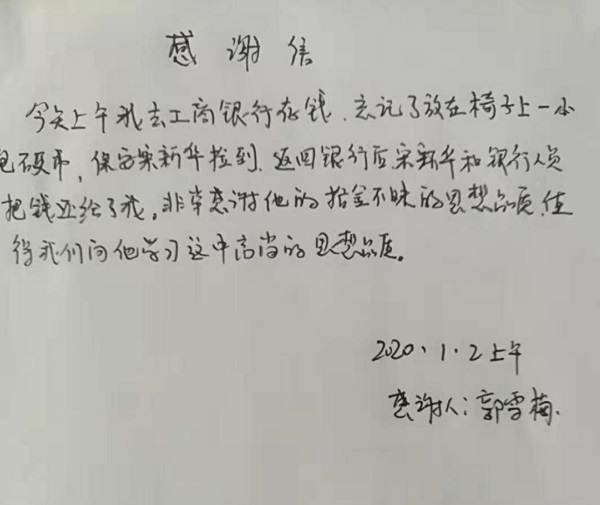 感谢信
今天上午我去工商银行存钱.忘记了放在椅子上一小
包硬币,保安宋新华捡到.返回银行后宋新华和银行人员
把钱还给了我,非常感谢他的拾金不昧的思想品质.值
得我们向他学习这中高尚的思想品质。
2020.1.2上午
感谢人:郭雪梅.